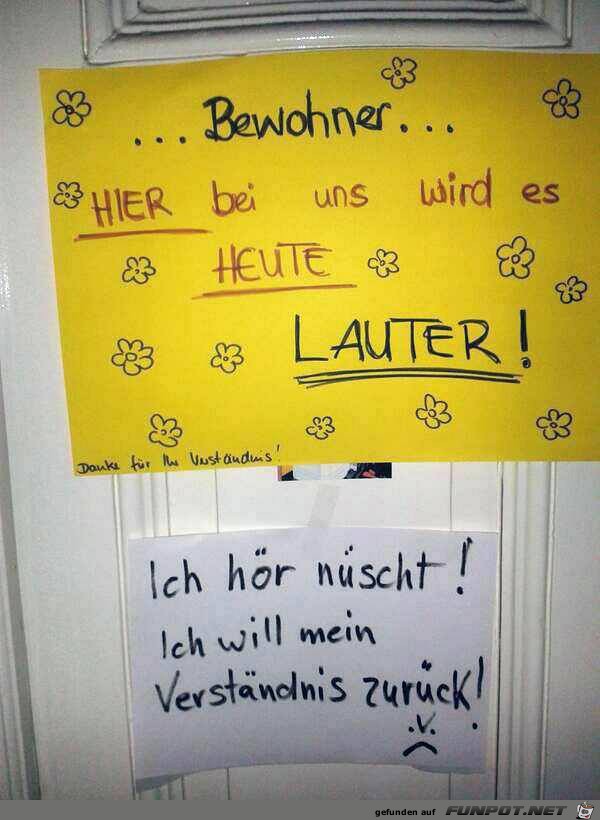 ... Bewohner...
HIER bei uns wird es
HEUTE
LAUTER!
Danke für Ihr Verständnis!
Ich hör nüscht!
Ich will mein
Verständnis zurück!
gefunden auf FUNPOT.NET